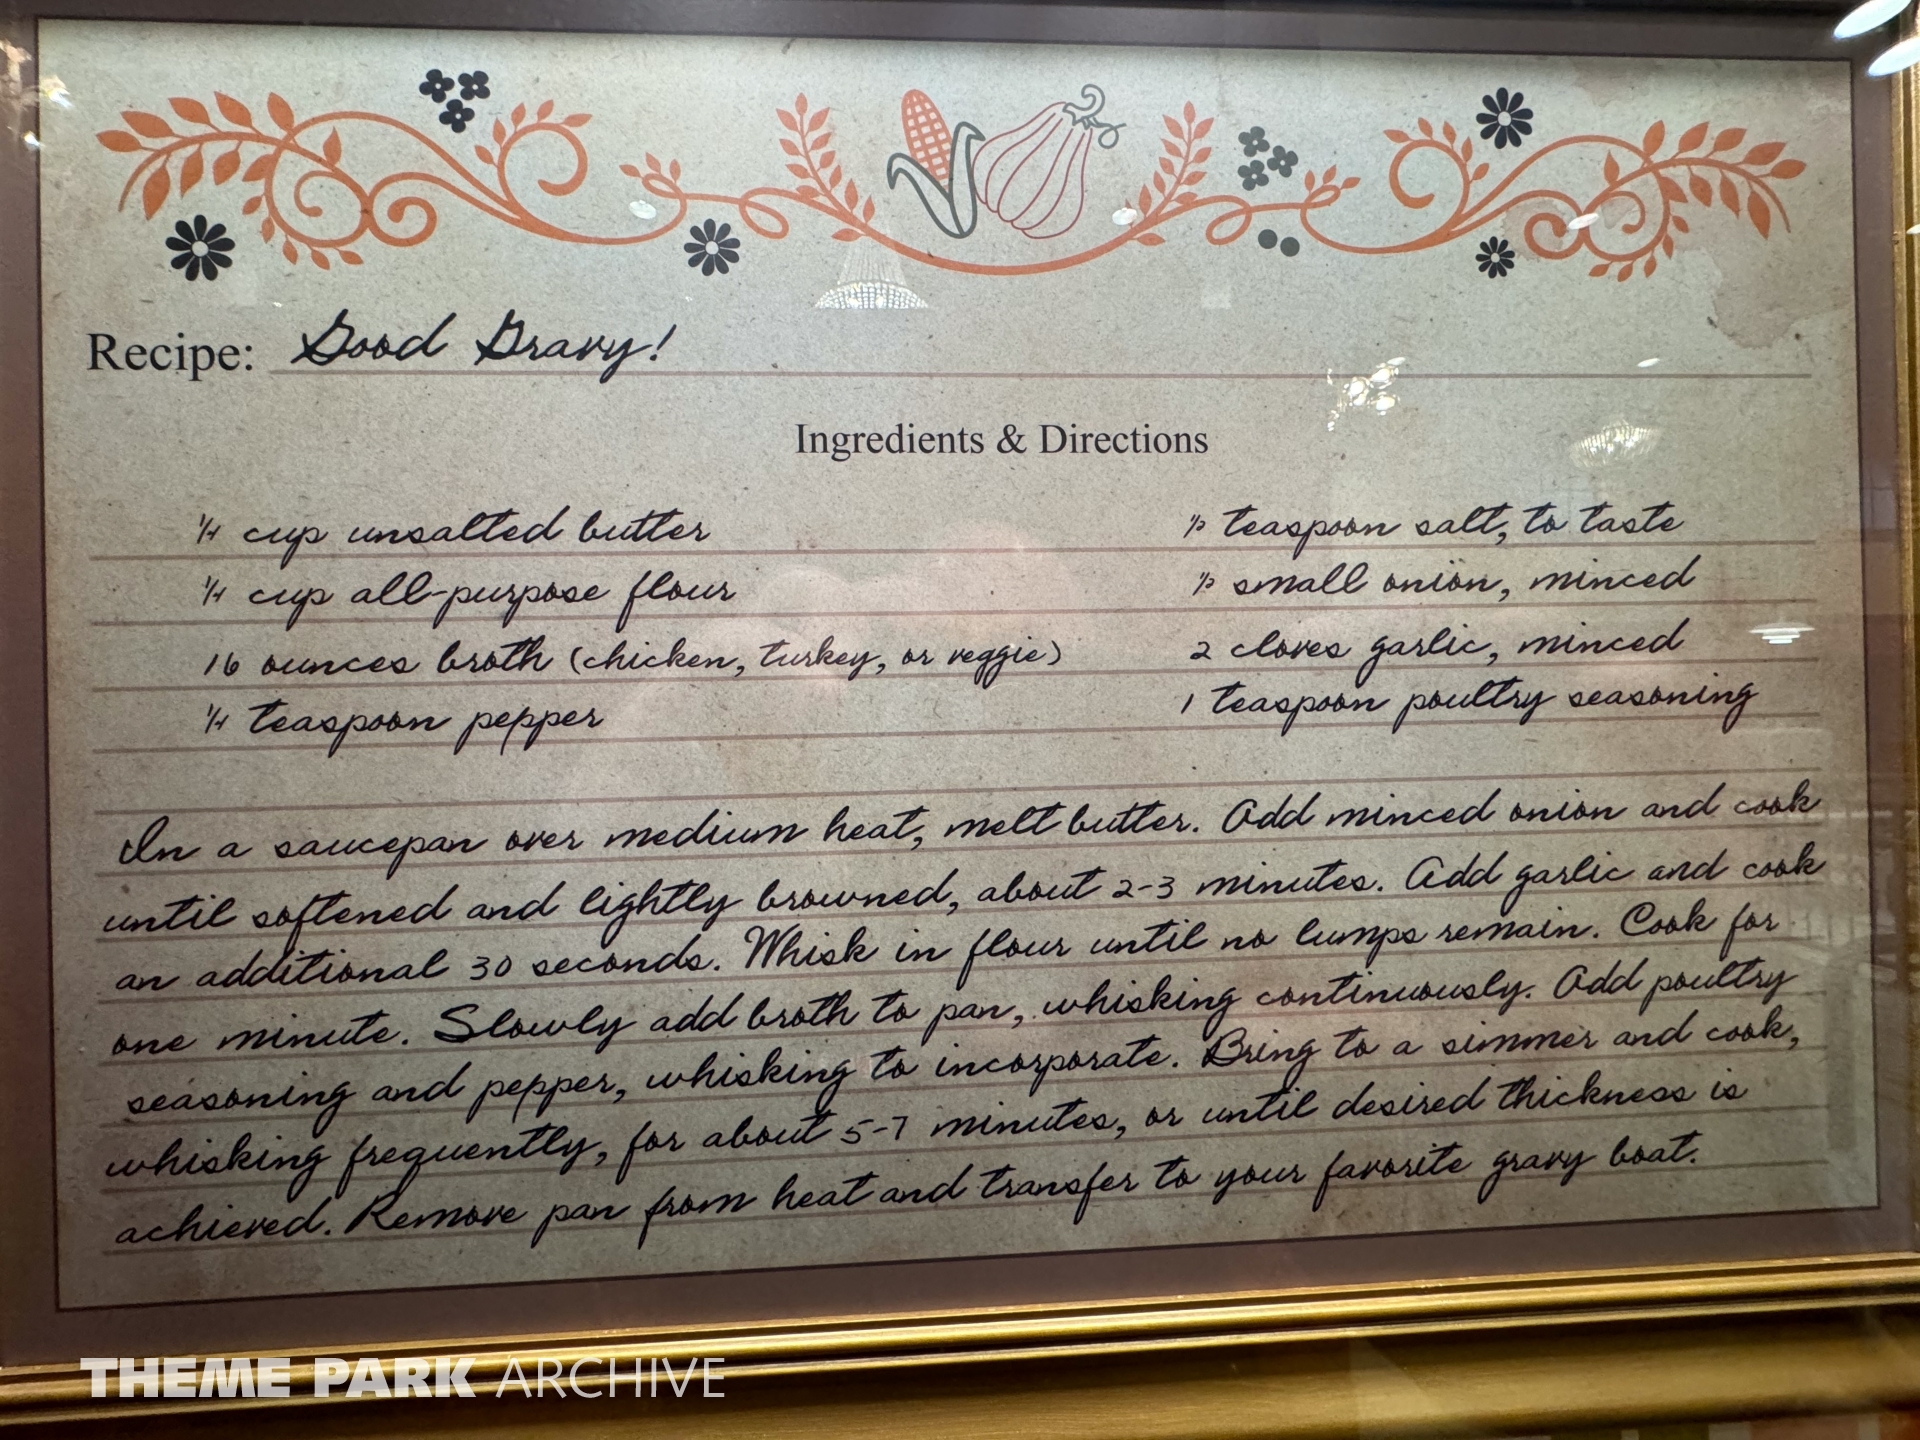 Recipe: Good Gravy!
Ingredients & Directions
1/4 cup unsalted butter
1/4 cup all-purpose flour
16 ounces broth (chicken, turkey, or veggie)
1/4 teaspoon pepper
1/2 teaspoon salt, to taste
1/2 small onion, minced
2 cloves garlic, minced
1 teaspoon poultry seasoning
In a saucepan over medium heat, melt butter. Add minced onion and cook
until softened and lightly browned, about 2-3 minutes. Add garlic and cook
an additional 30 seconds. Whisk in flour until no lumps remain. Cook for
one minute. Slowly add broth to pan, whisking continuously. Add poultry
seasoning and pepper, whisking to incorporate. Bring to a simmer and cook,
whisking frequently, for about 5-7 minutes, or until desired thickness is
achieved. Remove pan from heat and transfer to your favorite gravy boat.
THEME PARK ARCHIVE